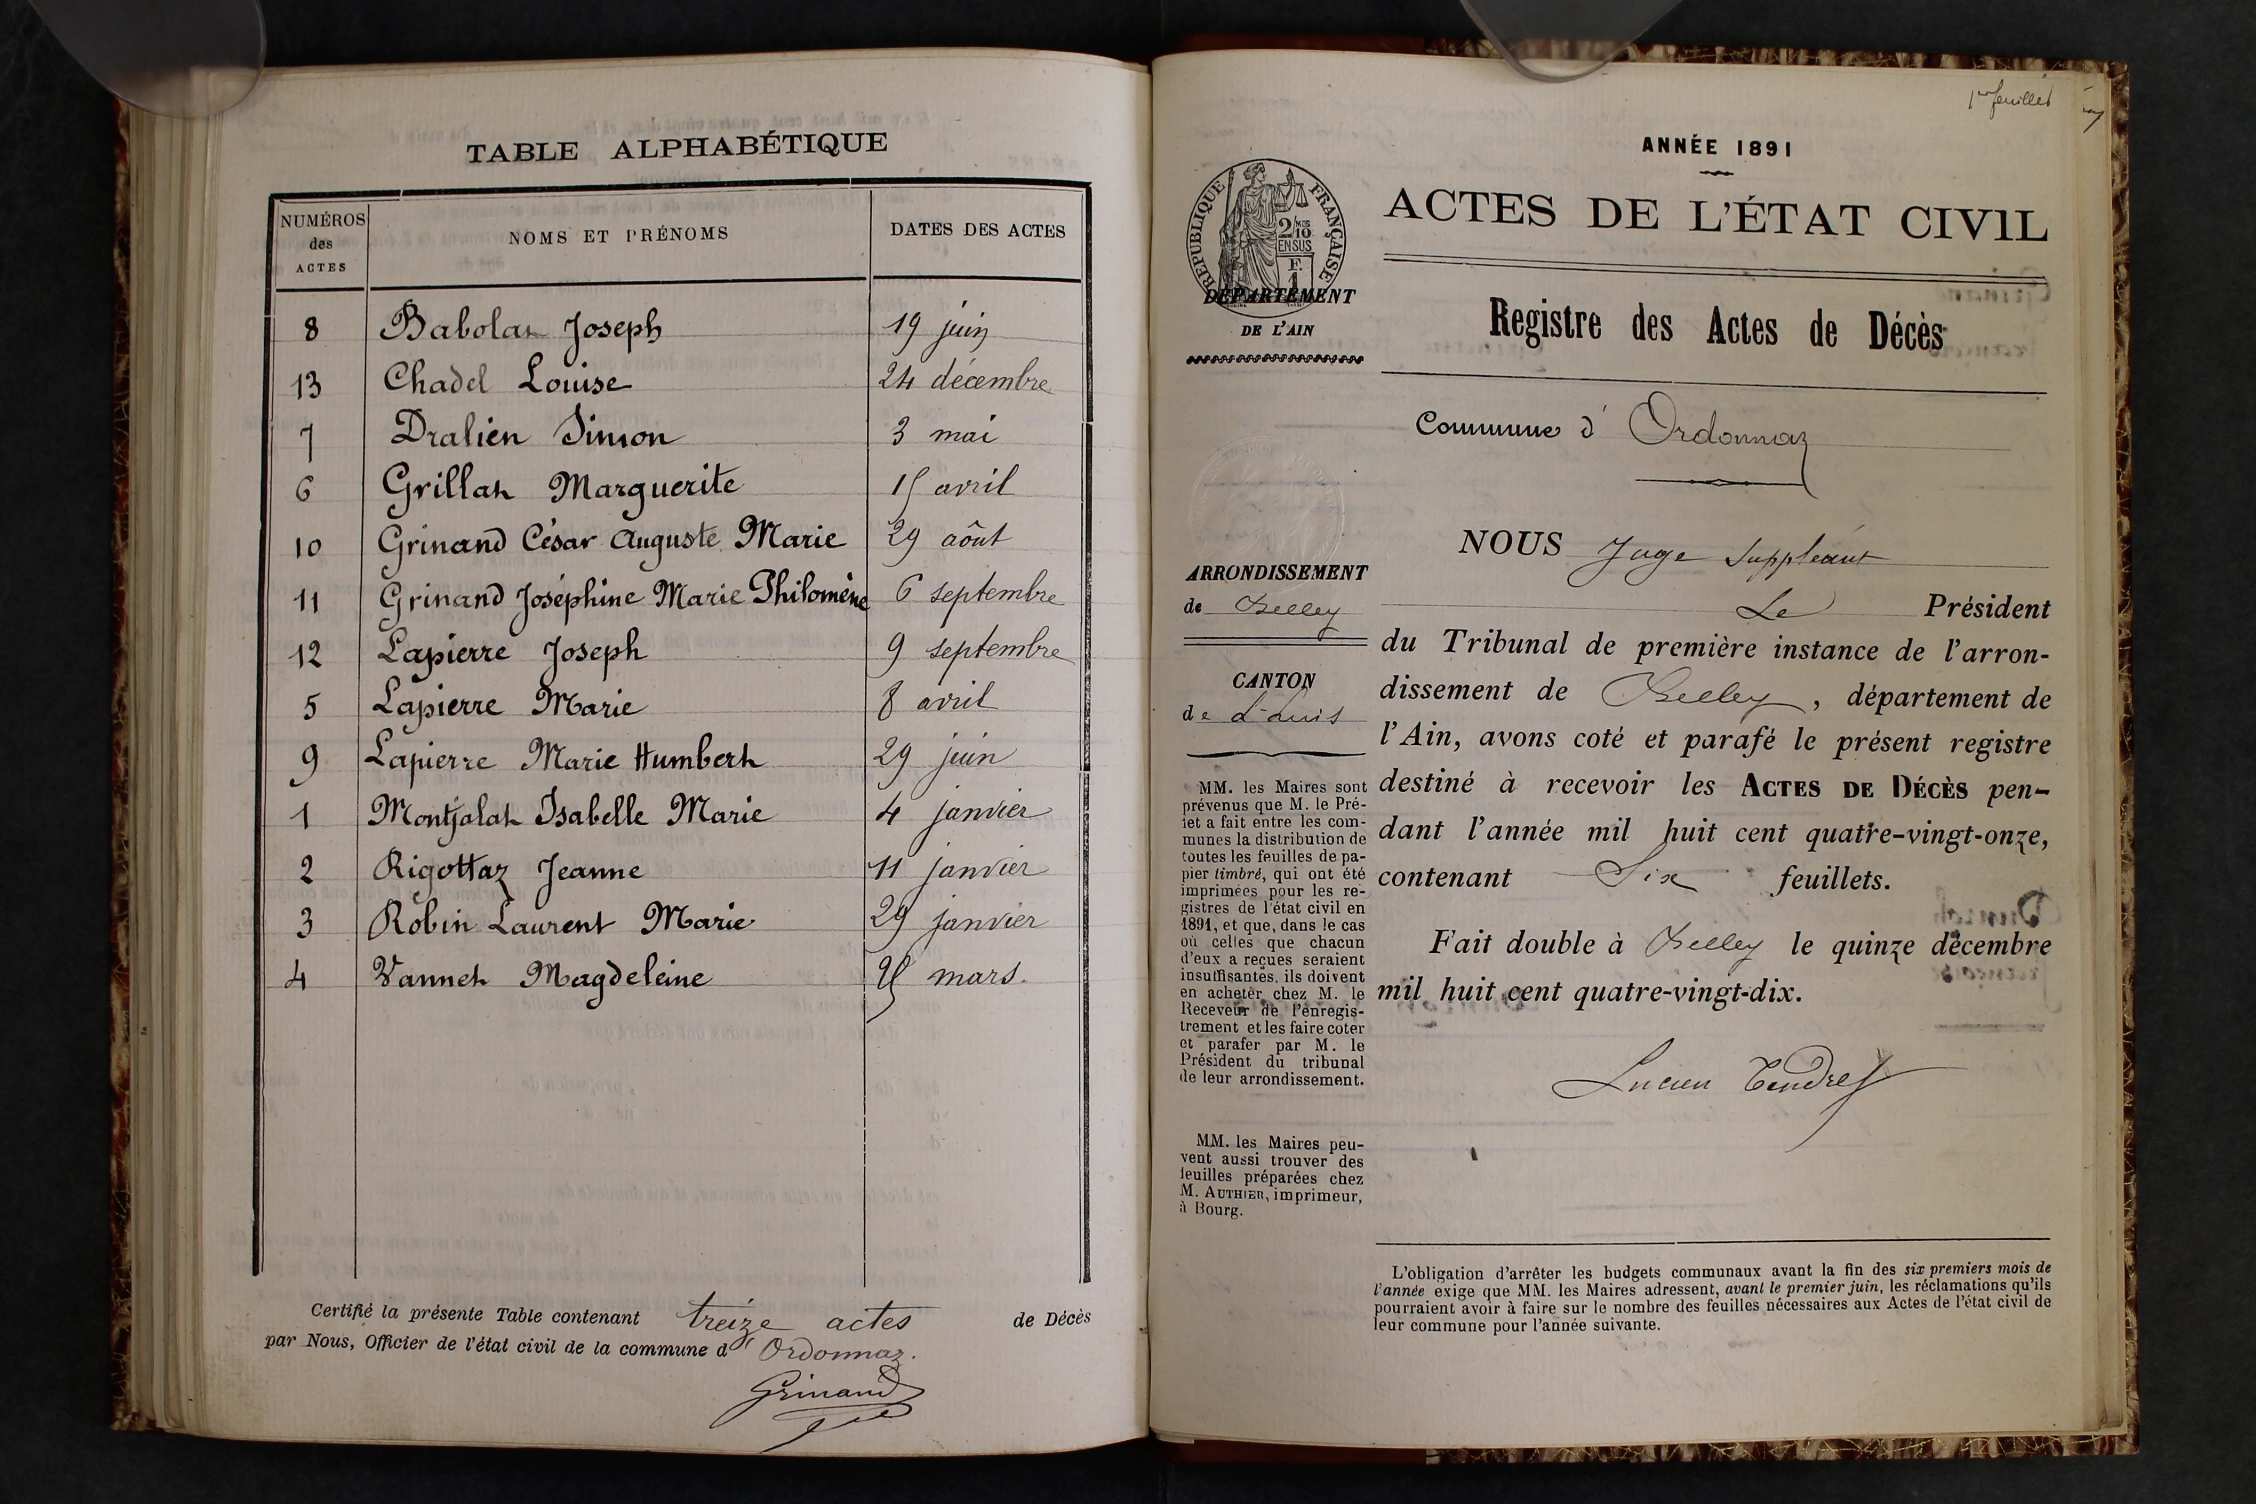 TABLE ALPHABÉTIQUE
NUMÉROS des ACTES
NOMS ET PRÉNOMS
DATES DES ACTES
8 Babolat Joseph 19 juin
13 Chadel Louise 24 décembre
7 Dralien Simon 3 mai
6 Grillat Marguerite 15 avril
10 Grinand César Auguste Marie 29 août
11 Grinand Joséphine Marie Philomène 6 septembre
12 Lapierre Joseph 9 septembre
5 Lapierre Marie 8 avril
9 Lapierre Marie Humbert 29 juin
1 Montjalat Isabelle Marie 4 janvier
2 Rigottaz Jeanne 11 janvier
3 Robin Laurent Marie 29 janvier
4 Vannet Magdeleine mars.
Certifié la présente Table contenant treize actes de Décès
par Nous, Officier de l'état civil de la commune d'Ordonnaz.
Grinand
1er feuillet
ANNÉE 1891
ACTES DE L'ÉTAT CIVIL
RÉPUBLIQUE FRANÇAISE
2/10
EN SUS
F.
1
DÉPARTEMENT
DE L'AIN
Registre des Actes de Décès
Commune d'Ordonnaz
ARRONDISSEMENT
de Belley
CANTON
de L'huis
MM. les Maires sont
prévenus que M. le Pré-
fet a fait entre les com-
munes la distribution de
toutes les feuilles de pa-
pier timbré, qui ont été
imprimées pour les re-
gistres de l'état civil en
1891, et que, dans le cas
où celles que chacun
d'eux a reçues seraient
insuffisantes, ils doivent
en acheter chez M. le
Receveur de l'enregis-
trement et les faire coter
et parafer par M. le
Président du tribunal
de leur arrondissement.
MM. les Maires peu-
vent aussi trouver des
feuilles préparées chez
M. AUTHIER, imprimeur,
à Bourg.
NOUS Juge Suppléant
Le Président
du Tribunal de première instance de l'arron-
dissement de Belley, département de
l'Ain, avons coté et parafé le présent registre
destiné à recevoir les ACTES DE DÉCÈS pen-
dant l'année mil huit cent quatre-vingt-onze,
contenant Six feuillets.
Fait double à Belley le quinze décembre
mil huit cent quatre-vingt-dix.
Lucien Tendret
L'obligation d'arrêter les budgets communaux avant la fin des six premiers mois de
l'année exige que MM. les Maires adressent, avant le premier juin, les réclamations qu'ils
pourraient avoir à faire sur le nombre des feuilles nécessaires aux Actes de l'état civil de
leur commune pour l'année suivante.